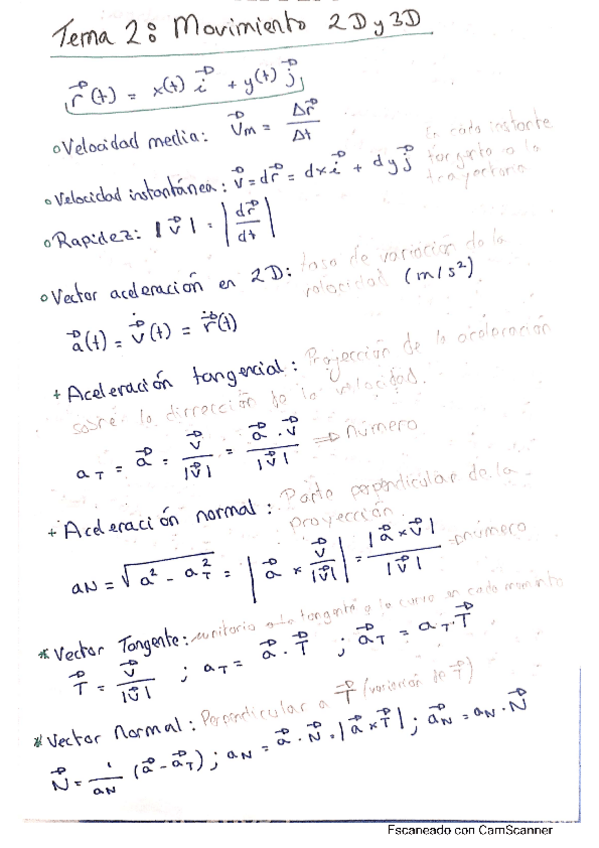 Tema 2: Movimiento 2D y 3D
r⃗(t) = x(t) i⃗ + y(t) j⃗
o Velocidad media: V⃗m = Δr⃗/Δt
o Velocidad instantánea: v⃗ = dr⃗ = dx i⃗ + dy j⃗ En cada instante tangente a la trayectoria
o Rapidez: |v⃗| = |dr⃗/dt|
o Vector aceleración en 2D: tasa de variación de la velocidad (m/s²)
a⃗(t) = v⃗̇(t) = r⃗̈(t)
+ Aceleración tangencial: Proyección de la aceleración
sobre la dirección de la velocidad.
a_T = a⃗ · v⃗/|v⃗| = a⃗ · v⃗/|v⃗| ⇒ número
+ Aceleración normal: Parte perpendicular de la
proyección.
aN = √(a² - a_T²) = |a⃗ × v⃗/|v⃗|| = |a⃗ × v⃗|/|v⃗| ⇒ número
* Vector Tangente: unitario a la tangente a la curva en cada momento
T⃗ = v⃗/|v⃗| ; a_T = a⃗ · T⃗ ; a⃗_T = a_T · T⃗
* Vector Normal: Perpendicular a T⃗ (variación de T⃗)
N⃗ = 1/aN (a⃗ - a⃗_T) ; aN = a⃗ · N⃗ = |a⃗ × T⃗| ; a⃗N = aN · N⃗
Escaneado con CamScanner